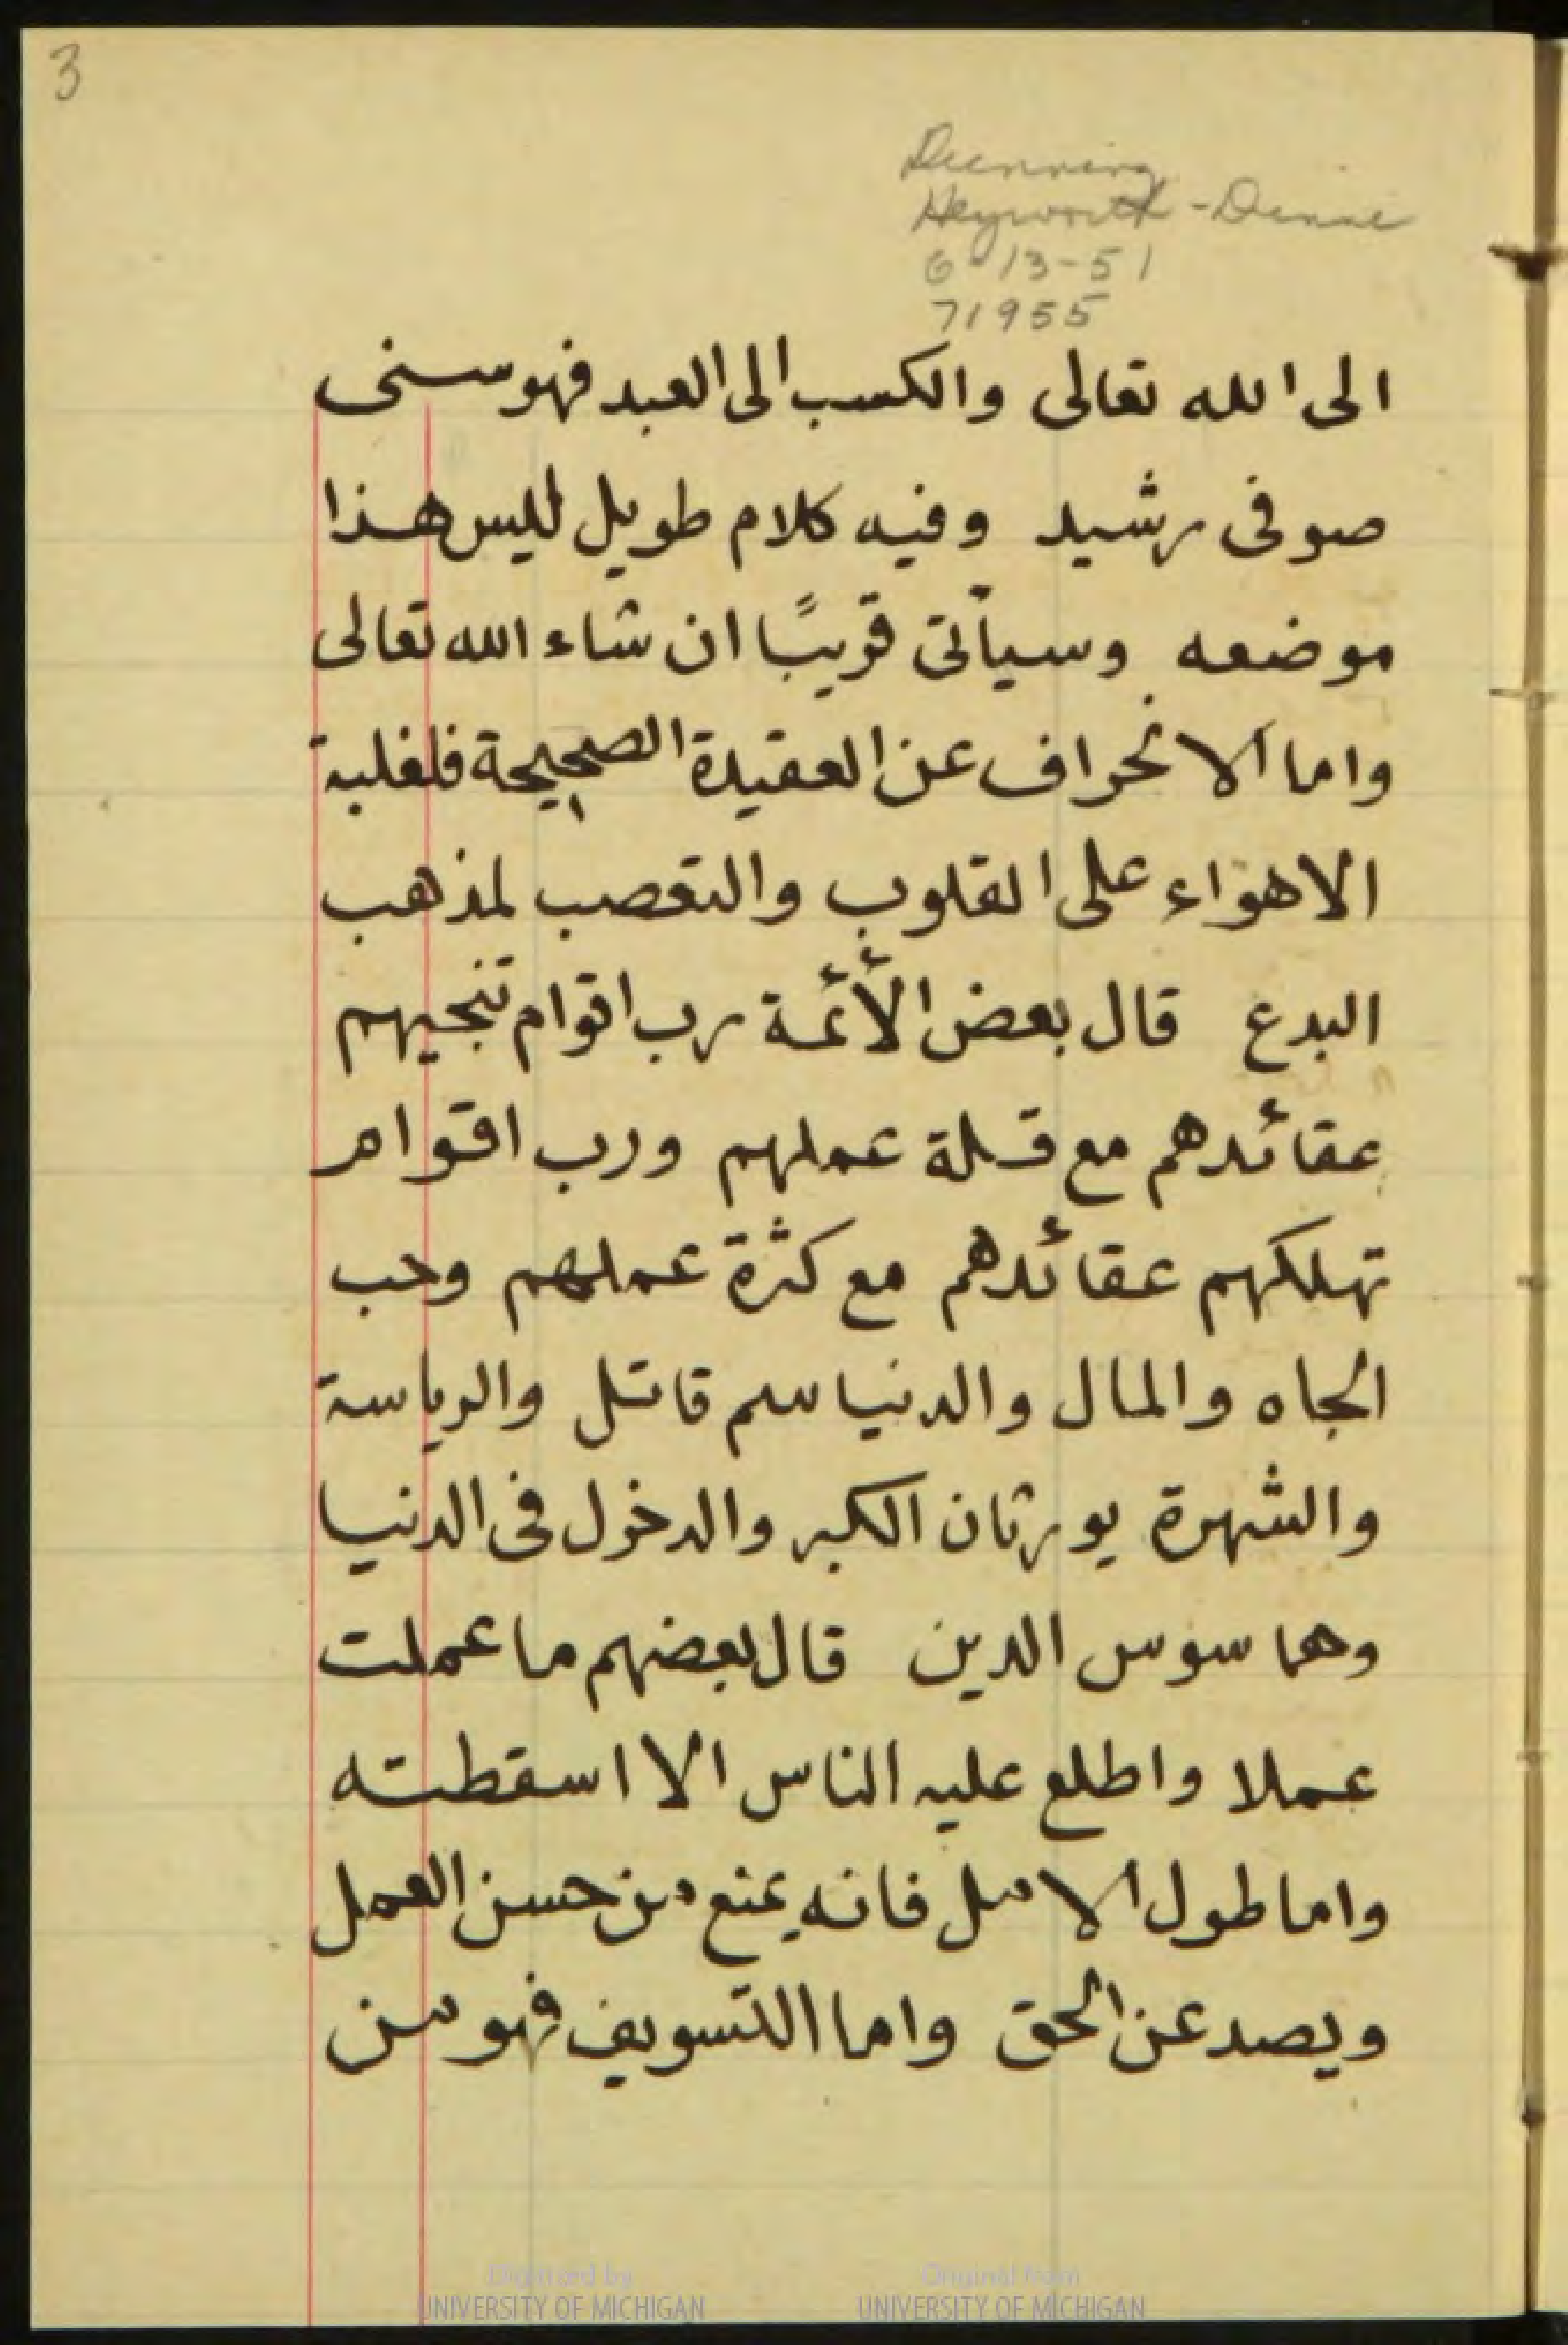 3
Dunning
Heyworth-Dunne
6-13-51
71955
الى الله تعالى والكسب الى العبد فهو سنى
صوفى رشيد وفيه كلام طويل لليس هذا
موضعه وسيأتى قريبًا ان شاء الله تعالى
واما الانحراف عن العقيدة الصحيحة فلغلبة
الاهواء على القلوب والتعصب لمذهب
البدع قال بعض الأئمة رب اقوام تنجيهم
عقائدهم مع قلة عملهم ورب اقوام
تهلكهم عقائدهم مع كثرة عملهم وحب
الجاه والمال والدنيا سم قاتل والرياسة
والشهرة يورثان الكبر والدخول فى الدنيا
وهما سوس الدين قال بعضهم ما عملت
عملا واطلع عليه الناس الا اسقطته
واما طول الامل فانه يمنع من حسن العمل
ويصد عن الحق واما التسويف فهو من
Digitized by
UNIVERSITY OF MICHIGAN
Original from
UNIVERSITY OF MICHIGAN